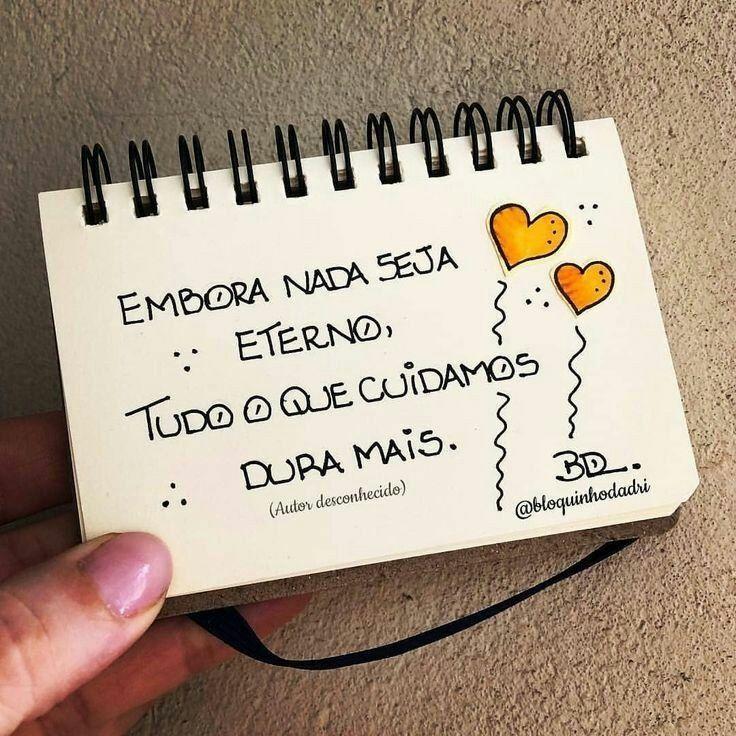 EMBORA NADA SEJA
ETERNO,
TUDO O QUE CUIDAMOS
DURA MAIS.
(Autor desconhecido)
BD.
@bloquinhodadri